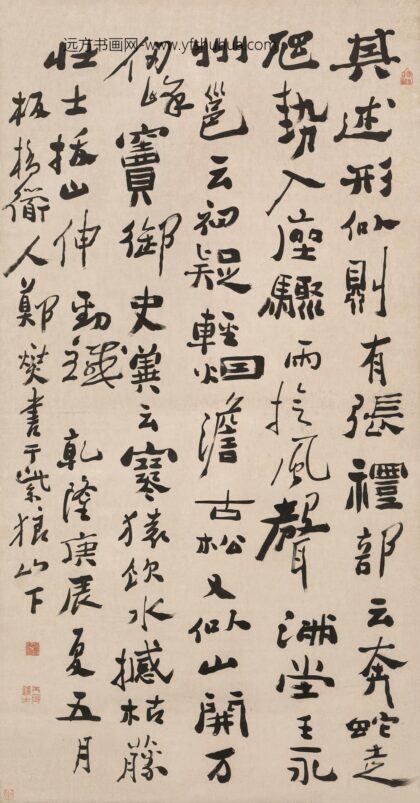 远方书画网·www.yfshuhua.com
其述形似則有張禮部云奔蛇走
虺勢入座驟雨旋風聲滿堂王永
州邕云初疑輕烟澹古松又似山開万
仞峰竇御史冀云寒猿飲水撼枯藤
壯士拔山伸勁鐵 乾隆庚辰夏五月
板桥衜人鄭燮書于紫狼山下